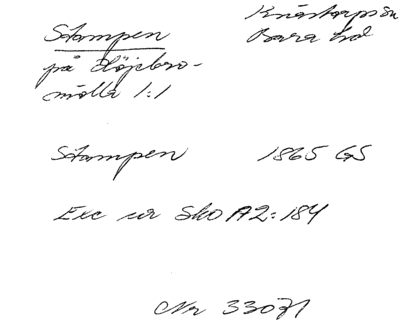 Stampen
på Höjebro-
mölla 1:1
Knästorps sn
Bara hd
Stampen 1865 GS
Exc ur Sko A2:184
Nr 33071